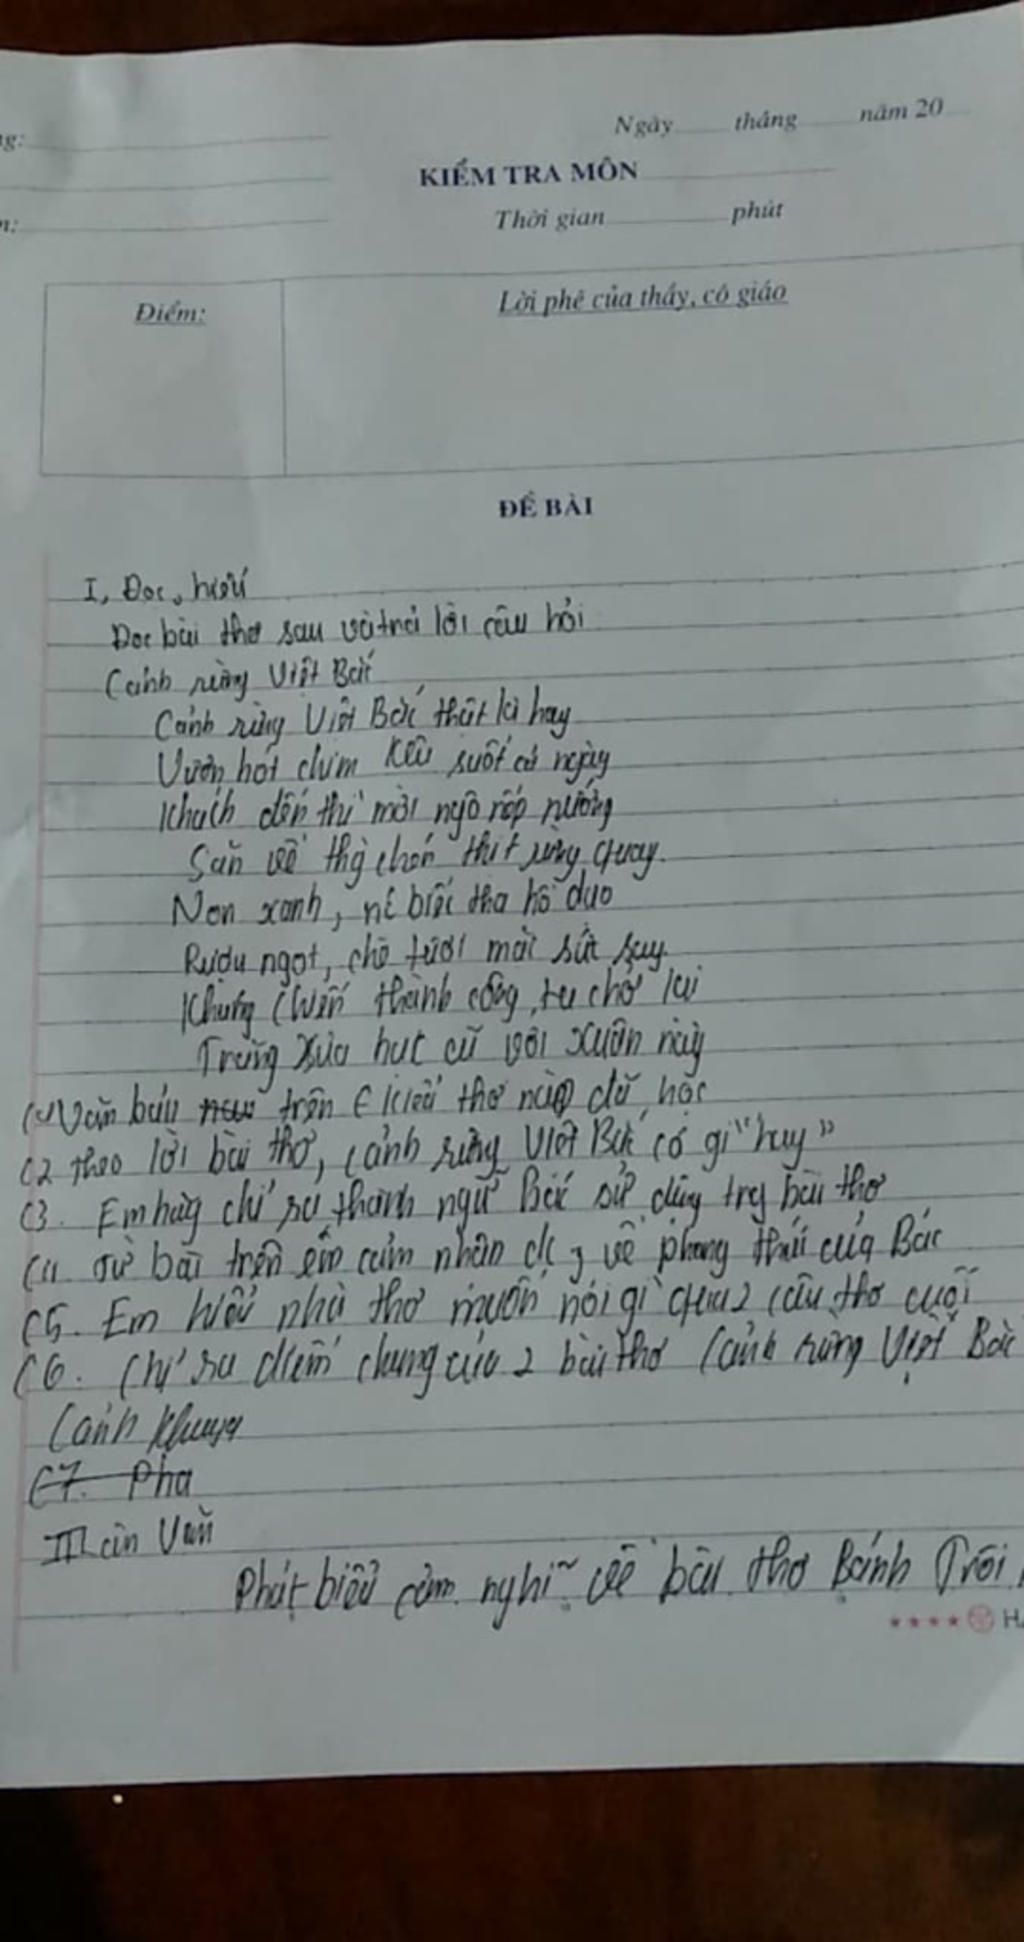 Ngày tháng năm 20
KIỂM TRA MÔN
Thời gian phút
Điểm:
Lời phê của thầy, cô giáo
ĐỀ BÀI
I, Đọc, hiểu
Đọc bài thơ sau và trả lời câu hỏi
Cảnh rừng Việt Bắc
Cảnh rừng Việt Bắc thật là hay
Vượn hót chim kêu suốt cả ngày
Khách đến thì mời ngô nếp nướng
Săn về thg chén thịt rừng quay.
Non xanh, nc biếc tha hồ dạo
Rượu ngọt, chè tươi mặc sức say.
Kháng chiến thành công, ta chở lại
Trăng xưa hạc cũ với xuân này
C1 Văn bản trên thơ nào đã học
C2 theo lời bài thơ, cảnh rừng Việt Bắc có gì "hay"
C3. Em hãy chỉ ra thành ngữ Bác sử dụng trg bài thơ
từ bài trên em cảm nhận về phong thái của Bác
C5. Em hiểu nhà thơ muốn nói gì qua 2 câu thơ cuối
C6. Chỉ ra điểm chung của 2 bài thơ Cảnh rừng Việt Bắc
Cảnh khuya
C7. Pha
III Làm Văn
Phát biểu cảm nghĩ về bài thơ Bánh Trôi